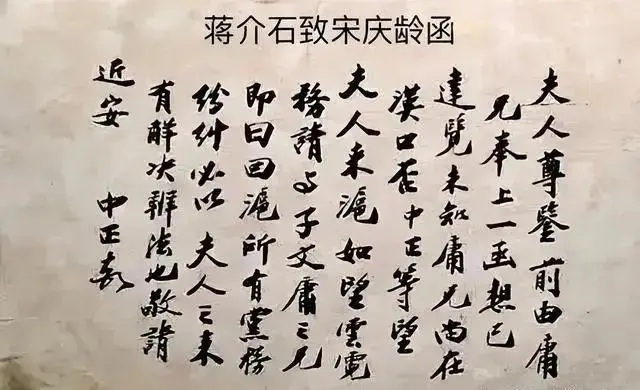 蒋介石致宋庆龄函
夫人尊鑒前由庸
兄奉上一函想已
達覽未知庸兄尚在
漢口否中正等望
夫人来滬如望雲霓
務請與子文庸之兄
即日回滬所有黨務
纷糾必以夫人之来
有解决辦法也敬請
近安 中正